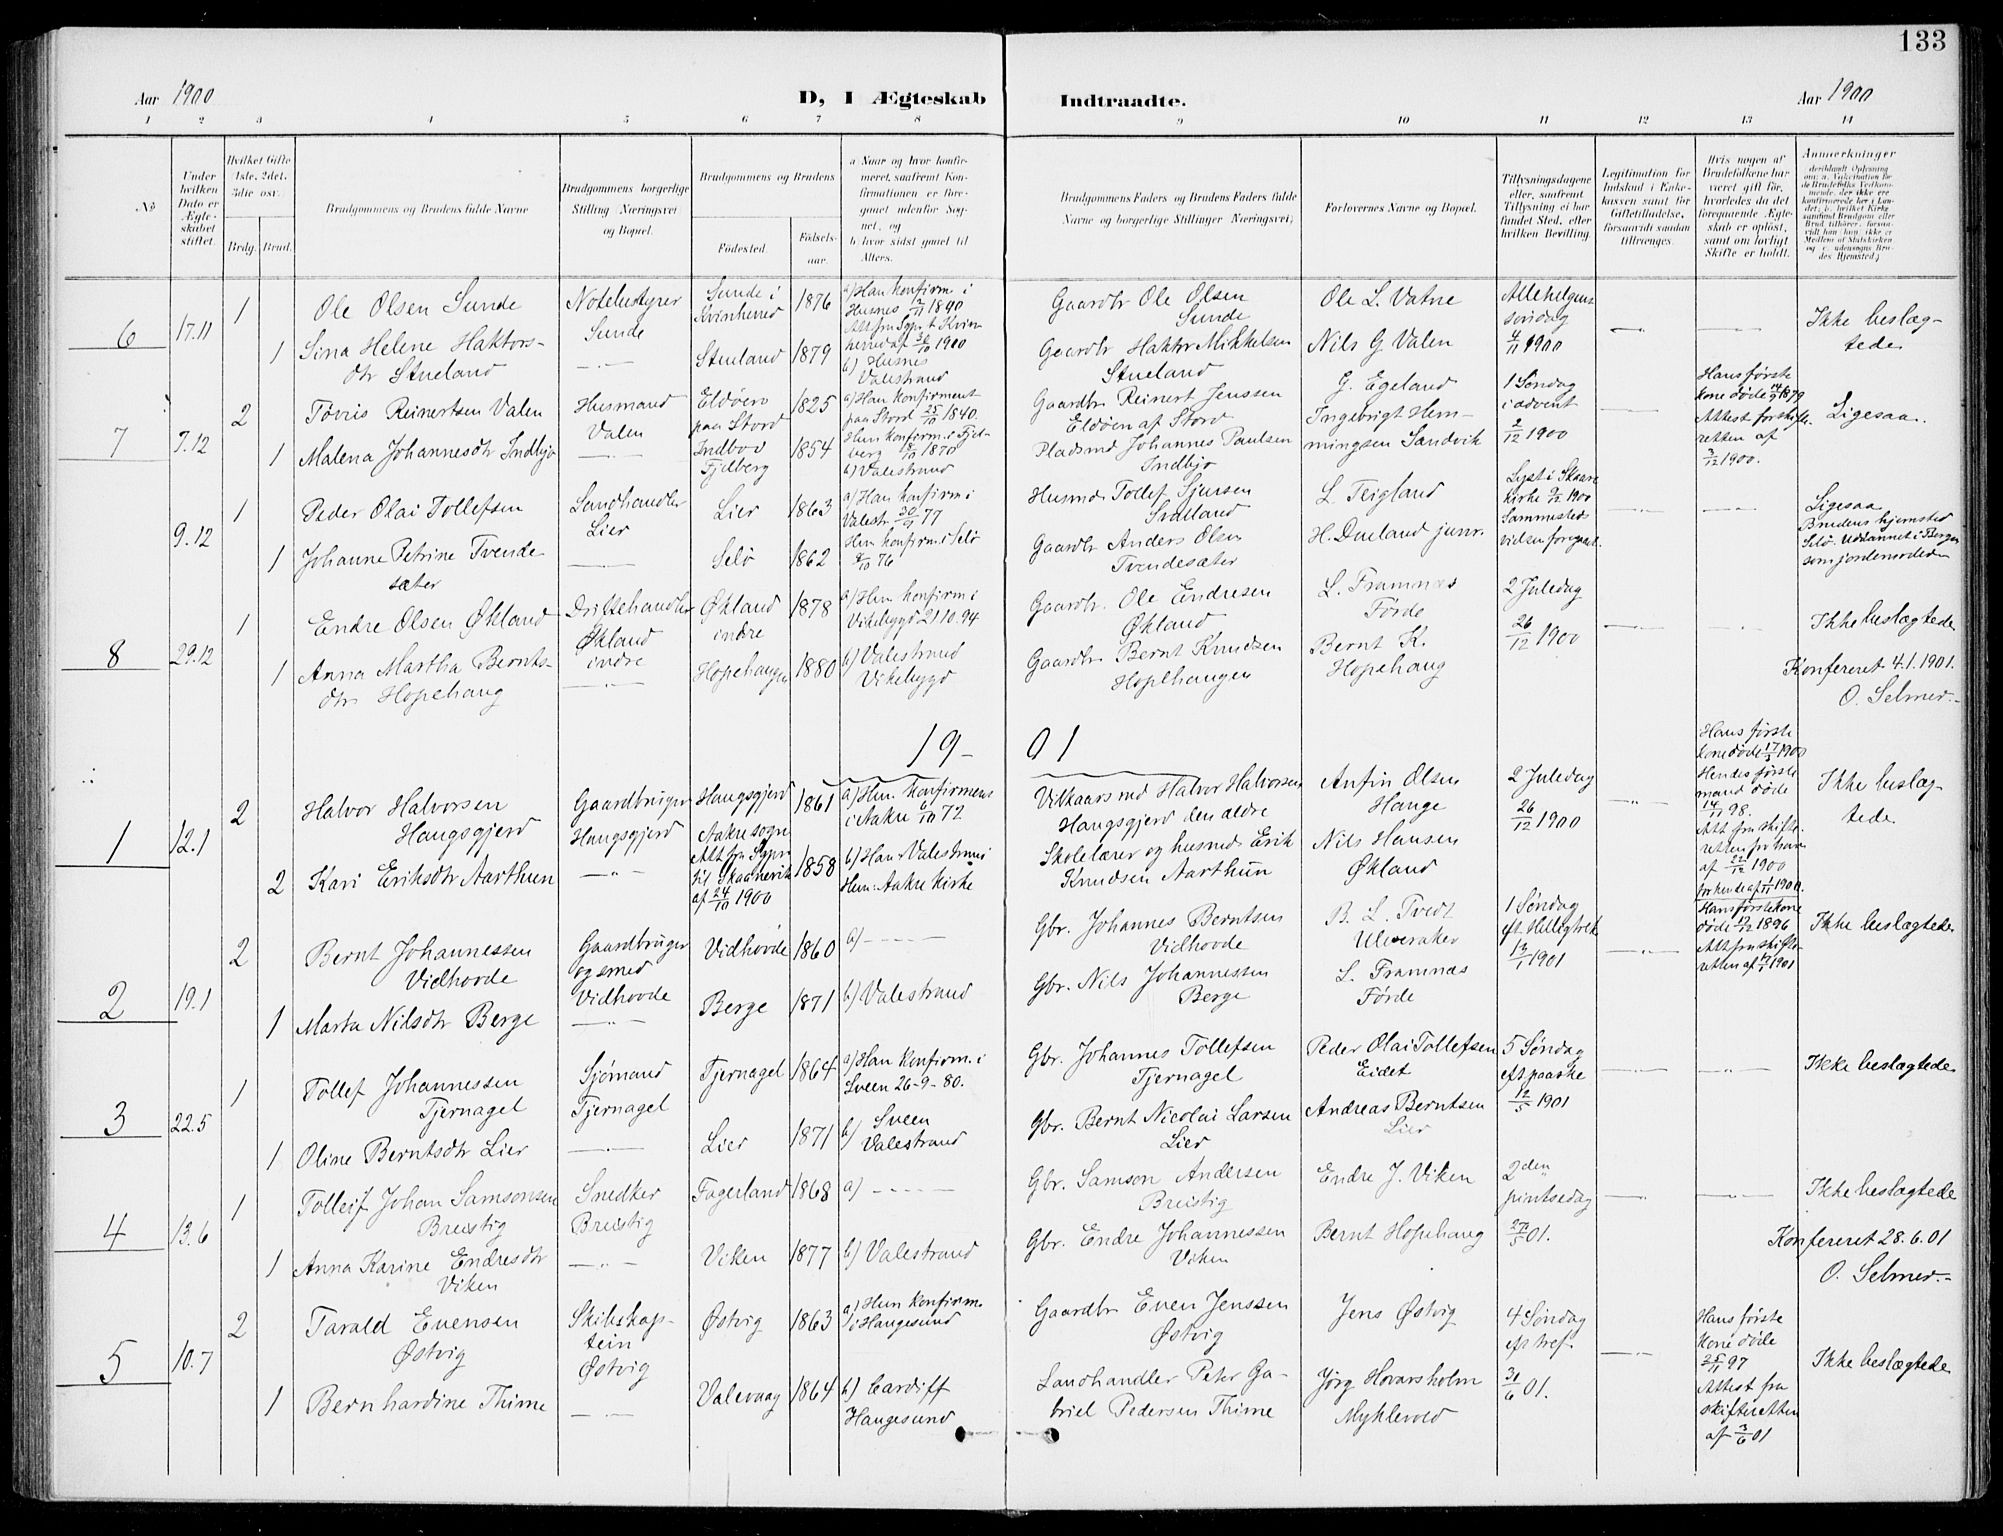 133
Aar 1900
D, I Ægteskab Indtraadte.
Aar 1900
1 2 3 4 5 6 7 8 9 10 11 12 13 14
No
Under hvilken Dato er Ægteskabet stiftet.
Hvilket Gifte 1ste, 2det, 3die osv.
Brdg. Brud.
Brudgommens og Brudens fulde Navne
Brudgommens borgerlige Stilling Næringsvei og Bopæl.
Brudgommens og Brudens
Fødested.
Fødselsaar.
a Naar og hvor konfirmeret, saafremt Konfirmationen er foregaaet udenfor Sognet, og
b hvor sidst gaaet til Alters.
Brudgommens Faders og Brudens Faders fulde Navne og borgerlige Stillinger Næringsvei;
Forlovernes Navne og Bopæl.
Tillysningsdagene eller, saafremt Tillysning ei har fundet Sted, efter hvilken Bevilling.
Legitimation for Indskud i Enkekassen samt for Giftetilladelse, forsaavidt saadan tiltrænges.
Hvis nogen af Brudefolkene har været gift før, hvorledes da det foregaaende Ægteskab er opløst, samt om lovligt Skifte er holdt.
Anmærkninger
6
17.11
1
Ole Olsen Sunde
Notebestyrer
Sunde
Sunde i
Kvinherred
1876
a) Han konfirm i
Husnes 2/11 1890
Att fra Sgpr. t Kvin
herred af 30/10 1900
Gaardbr Ole Olsen
Sunde
Ole L. Vatne
Allehelgens
søndag
4/11 1900
Ikke beslæg-
tede.
1
Sina Helene Haktors-
dtr Stueland
Stueland
1879
b) Husnes
Valestrand
Gaardbr Haktor Mikkelsen
Stueland
Nils G Valen
7
7.12
2
Tøvris Reinertsen Valen
Husmand
Valen
Eldøen
paa Stord
1825
a) Han konfirment
paa Stord 25/10 1840.
Gaardbr Reinert Jenssen
Eldøen af Stord
G. Egeland
1 Søndag
i advent
2/12 1900
Hans første
kone døde 14/9 1879
Attest fra skifte-
retten af
3/12 1900.
Ligesaa.
1
Malena Johannesdtr Indbjo
Indboo
Fjelberg
1854
Hun konfirm. i Fjel-
berg 8/10 1870
b) Valestrand
Pladsmd Johannes Paulsen
Indbjo
Ingebrigt Hem-
mingsen Sandvik
9.12
1
Peder Olai Tollefsen
Landhandler
Lier
Lier
1863
a) Han konfirm i
Valestr. 30/9 77
Husmd Tollef Sjursen
L. Teigland
Lyst i Skaare
kirke 9/12 1900
Sammesteds
vielsen foregaat.
Ligesaa
Brudens hjemsted
Selø. Uddannet i Bergen
som jordemoder
1
Johanne Petrine Tvende-
sæter
Selø
1862
Hun konfirm. i Selø
8/10 76
Gaardbr Anders Olsen
Tvendesæter
H. Dueland junr.
8
29.12
1
Endre Olsen Økland
Driftehandler
Økland
indre
Økland
indre
1878
a) Han konfirm i
Vikebygd 21.10.94
Gaardbr. Ole Endresen
Økland
L. Framnæs
Førde
2 Juledag
26/12 1900
Ikke beslægtede
1
Anna Martha Bernts-
dtr Hopehaug
Hopehaugen
1880
b) Valestrand
Vikebygd
Gaardbr Bernt Knudsen
Hopehaugen
Bernt K.
Hopehaug
Konfereret 4.1.1901.
O. Selmer.
19- 01
1
12.1
2
Halvor Halvorsen
Haugsgjerd
Gaardbruger
Haugsgjerd
Haugsgjerd
1861
a) Hun konfirmens
i Aakre 6/10 72
Vilkaarsmd Halvor Halvorsen
Haugsgjerd den ældre
Anfin Olsen
Hauge
2 Juledag
26/12 1900
Hans første
kone døde 17/5 1900
Hendes første
mand døde
14/11 98.
Att fra skifte-
retten for ham
af 22/12 1900
for hende af 1/11 1900.
Ikke beslæg-
tede
2
Kari Eriksdtr Aarthun
Aakre sogn
Att fra Sgpr.
til Skaanevik
af 24/10 1900
1858
b) Han: Valestrand
Hun: Aakre Kirke
Skolelærer og husmd Erik
Knudsen Aarthun
Nils Hansen
Økland
2
19.1
2
Bernt Johannessen
Vidhovde
Gaardbruger
og smed
Vidhovde
Vidhovde
1860
a)
Gbr. Johannes Berntsen
Vidhovde
B. L. Tvedt
Ulveraker
1 Søndag
eft. Helligtrek.
13/1 1901
Hans første kone
døde 19/12 1896
Att fra skifte-
retten af 17/1 1901
Ikke beslægtede
1
Marta Nilsdtr Berge
Berge
1871
b) Valestrand
Gbr. Nils Johannessen
Berge
L. Framnæs
Førde
3
22.5
1
Tollef Johannessen
Tjernagel
Sjømand
Tjernagel
Tjernagel
1864
a) Han konfirm. i
Sveen 26-9-80.
Gbr. Johannes Tollefsen
Tjernagel
Peder Olai Tollefsen
Eidet
5 Søndag
eft paaske
12/5 1901
Ikke beslægtede
1
Oline Berntsdtr Lier
Lier
1871
b) Sveen
Valestrand
Gbr. Bernt Nicolai Larsen
Lier
Andreas Berntsen
Lier
4
13.6
1
Tolleif Johan Samsonsen
Breistig
Snedker
Breistig
Fagerland
1868
a)
Gbr. Samson Andersen
Breistig
Endre J. Viken
2den
pintsedag
27/5 01.
Ikke beslægtede
1
Anna Karine Endresdtr
Viken
Viken
1877
b) Valestrand
Gbr. Endre Johannessen
Viken
Bernt Hopehaug
Konfereret 28.6.01
O. Selmer.
5
10.7
2
Tarald Evensen
Østvig
Skibskap-
tein
Østvig
Østvig
1863
a) Hun konfirm.
i Haugesund
Gaardbr Even Jenssen
Østvig
Jens Østvig
4 Søndag
ef tref
30/6 01.
Hans første
kone døde
25/11 97
Attest fra
skifteretten
af 3/6 01
Ikke beslægtede
1
Bernhardine Thime
Valevaag
1864
b) Cardiff
Haugesund
Landhandler Peter Ga-
briel Pedersen Thime
Jørg Hovarsholm
Myklevold